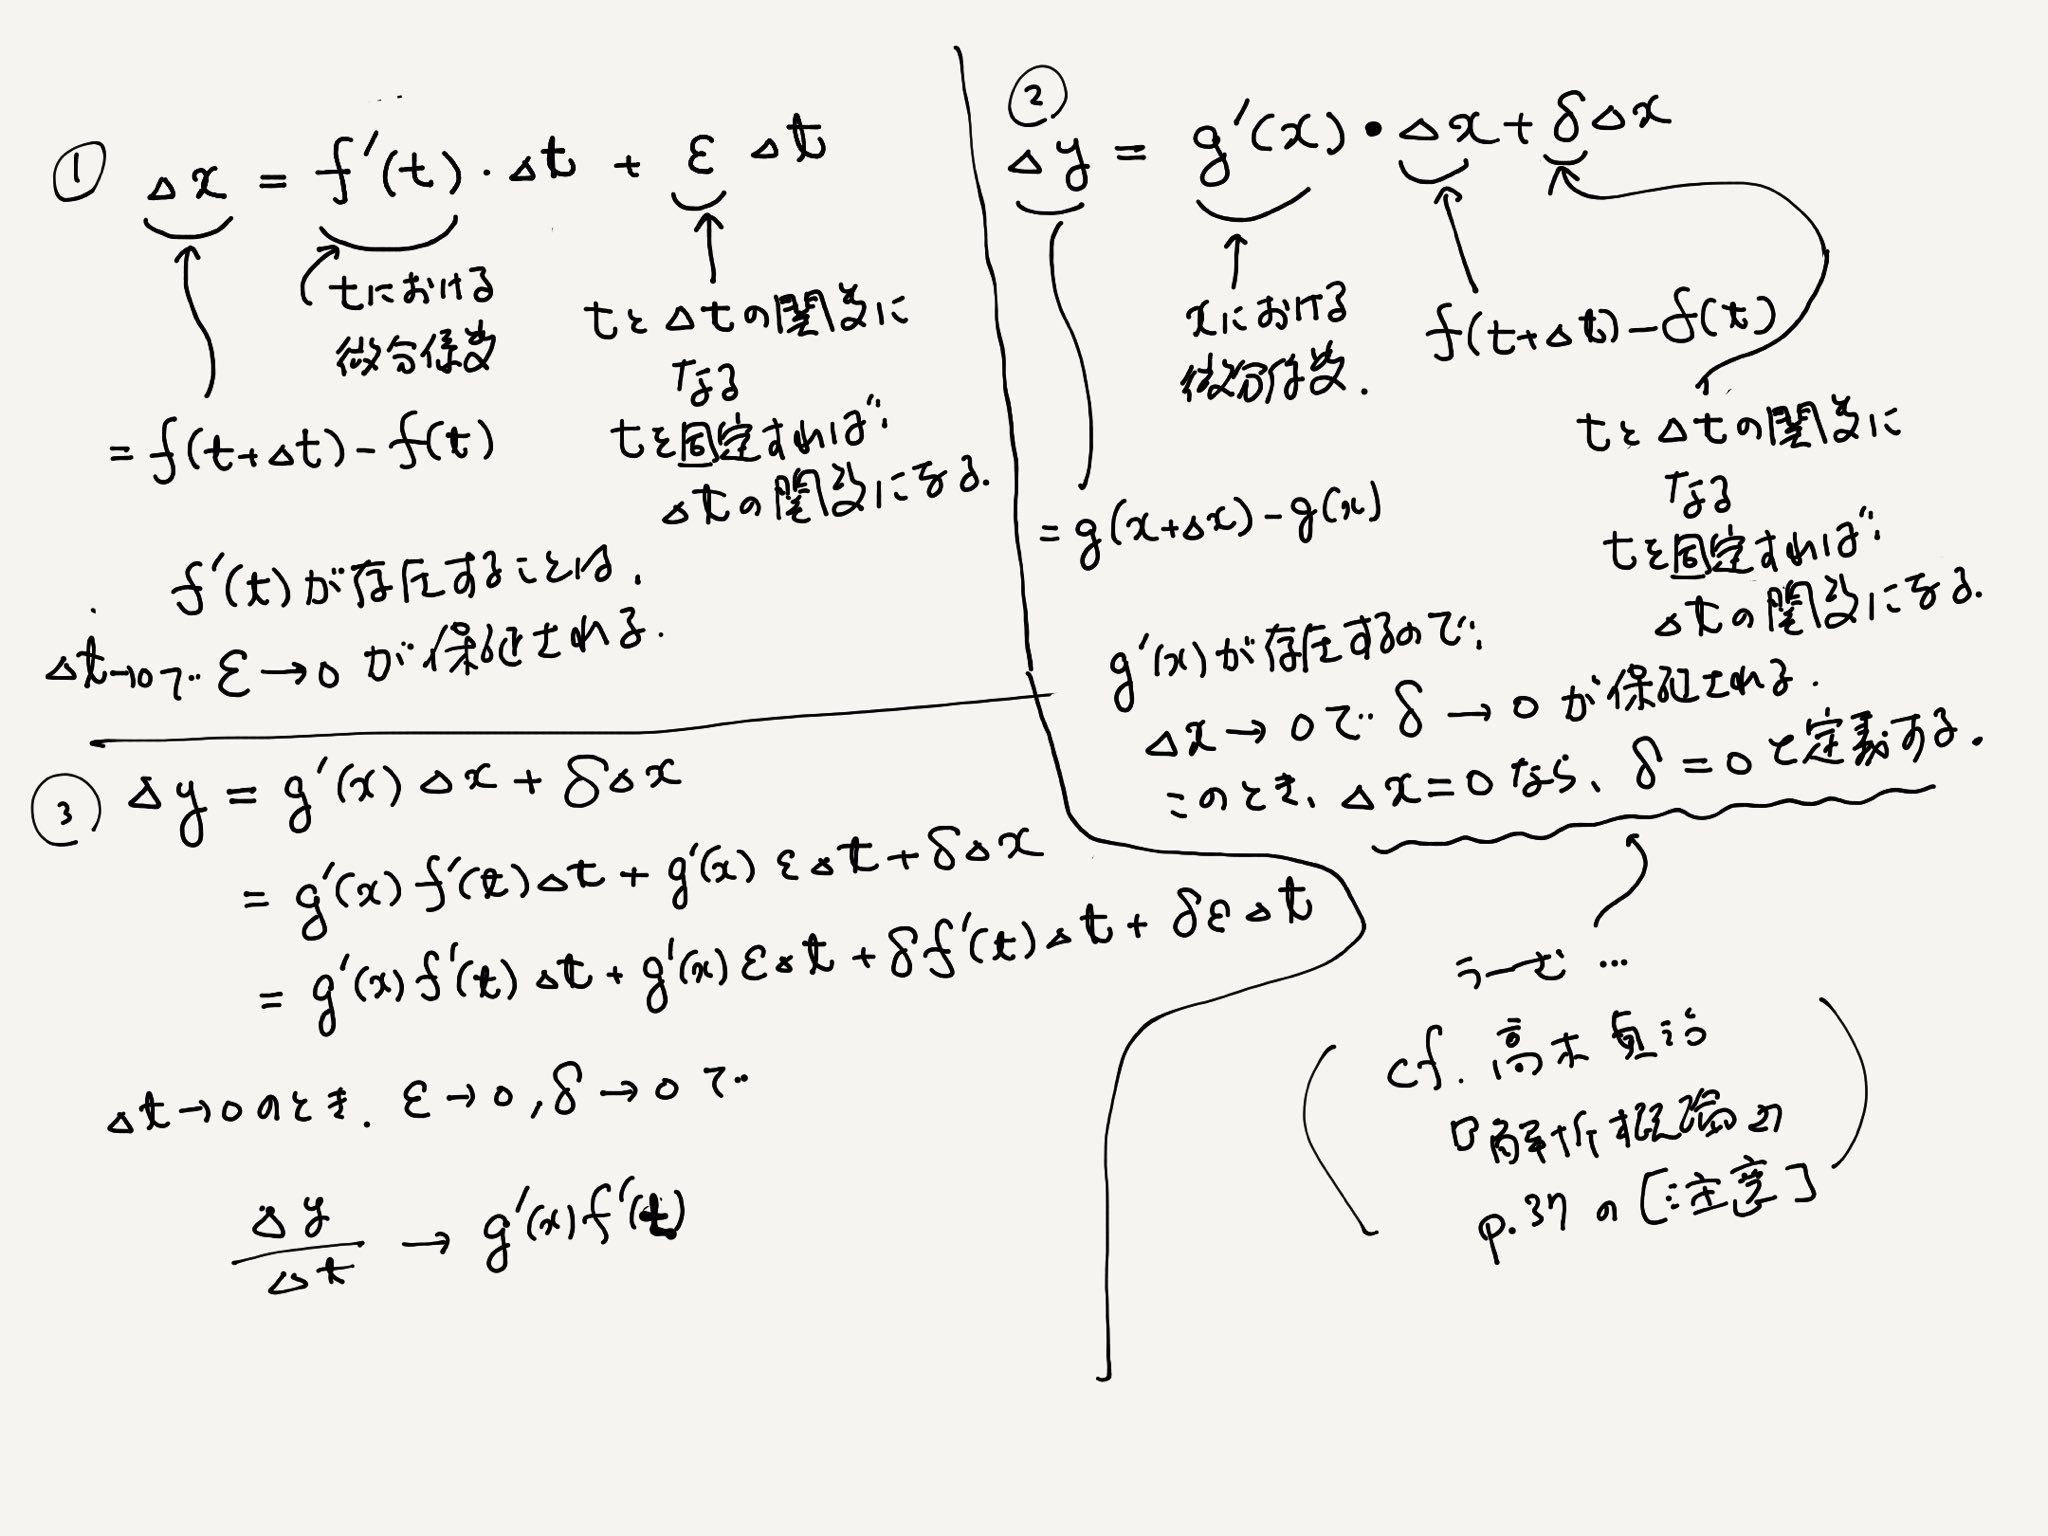 ①
Δx = f'(t)・Δt + ε Δt
tにおける
微分係数
= f(t+Δt) - f(t)
tとΔtの関数に
なる
tを固定すれば、
Δtの関数になる.
f'(t)が存在することは、
Δt→0で ε→0 が保証される.
②
Δy = g'(x)・Δx + δΔx
xにおける
微分係数.
f(t+Δt) - f(t)
= g(x+Δx) - g(x)
tとΔtの関数に
なる
tを固定すれば、
Δtの関数になる.
g'(x)が存在するので、
Δx→0で δ→0 が保証される.
このとき、Δx=0 なら、δ=0と定義する.
うーむ…
cf. 高木貞治
『解析概論』
p.37の[注意]
③
Δy = g'(x)Δx + δΔx
= g'(x)f'(t)Δt + g'(x)εΔt + δΔx
= g'(x)f'(t)Δt + g'(x)εΔt + δf'(t)Δt + δεΔt
Δt→0のとき、ε→0, δ→0で
Δy/Δt → g'(x)f'(t)